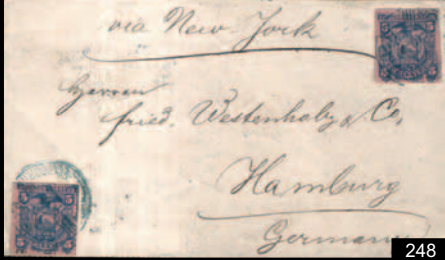 via New-York
Herren
fried. Westenholz & Co,
Hamburg
Germany
5 5
5 5
248